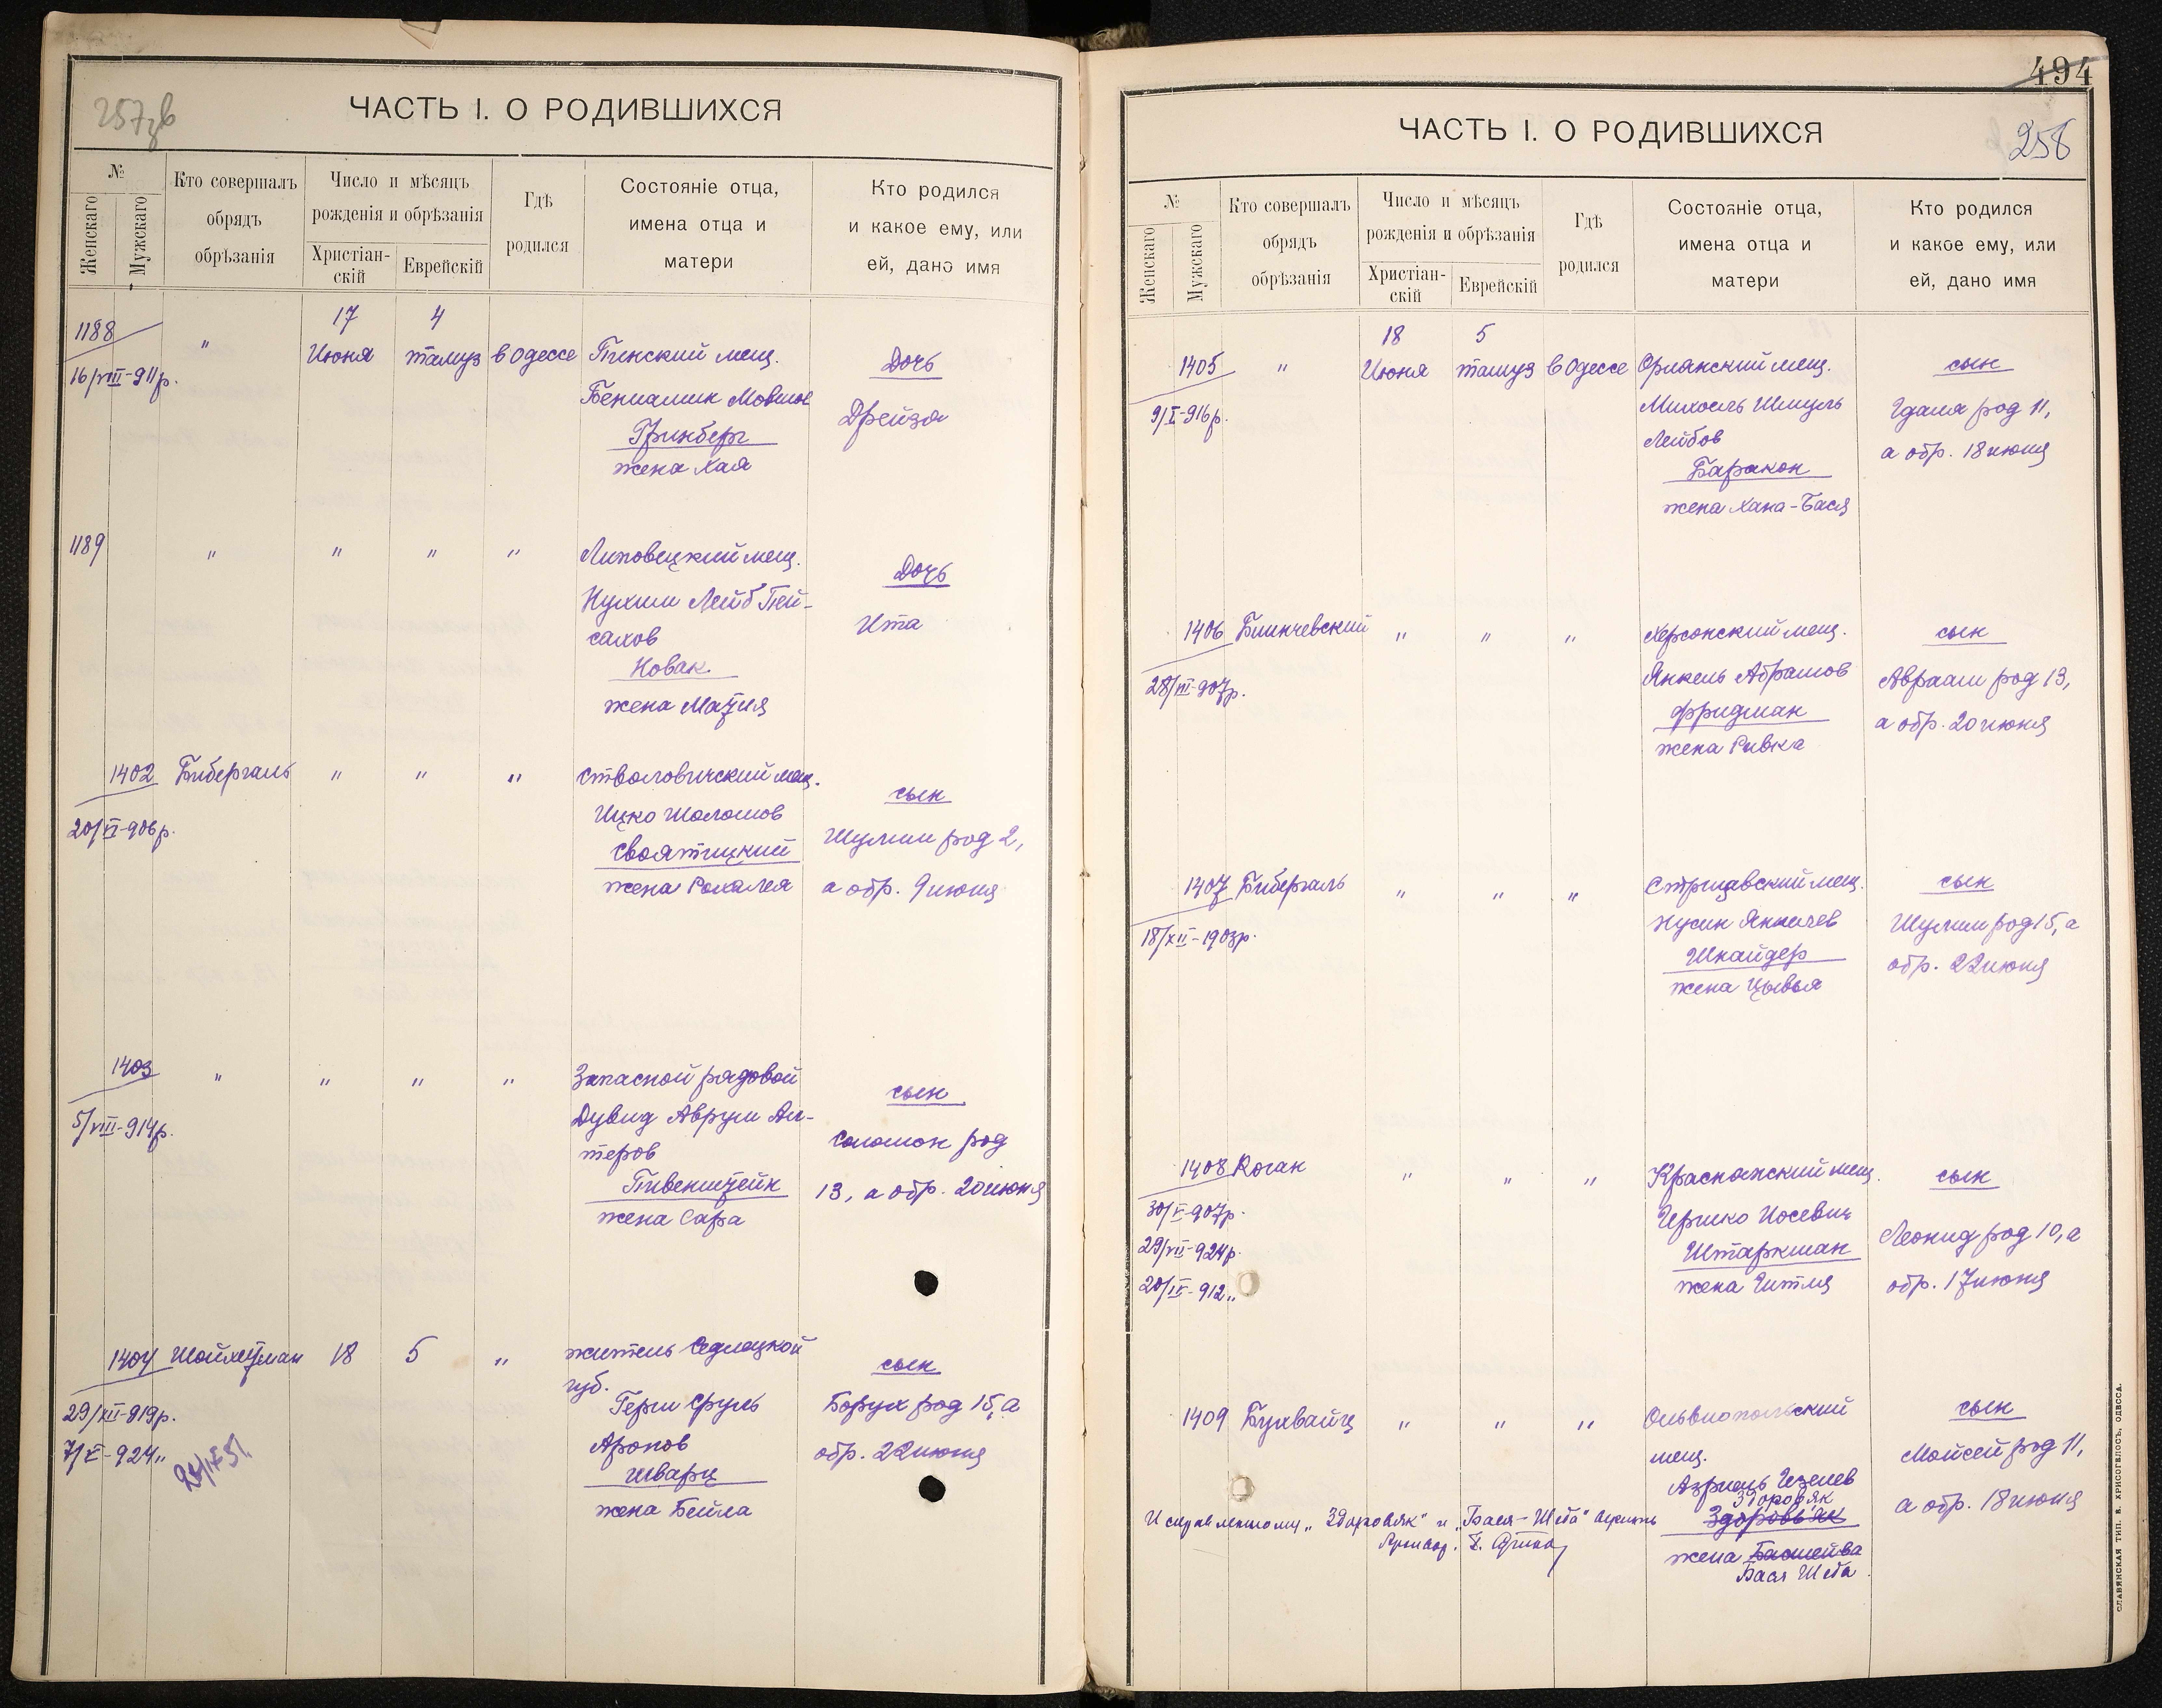 257зв
ЧАСТЬ I. О РОДИВШИХСЯ
№
Женскаго
Мужскаго
Кто совершалъ
обрядъ
обрѣзанія
Число и мѣсяцъ
рожденія и обрѣзанія
Христіан-
скій
Еврейскій
Гдѣ
родился
Состояніе отца,
имена отца и
матери
Кто родился
и какое ему, или
ей, дано имя
1188
16/VIII-911р.
"
17
Июня
4
тамуз
в Одессе
Пинский мещ.
Бениамин Мовшов
Гринберг
жена Хая
Дочь
Дрейза
1189
" " " "
Липовецкий мещ.
Нухим Лейб Пей-
сахов
Новак
жена Матля
Дочь
Ита
1402
20/VI-906р.
Бибергаль
" " "
Стволовичский мещ.
Ицко Шоломов
Своятицкий
жена Рохалея
сын
Шулим род 2,
а обр. 9 июня
1403
5/VIII-914р.
" " " "
Запасной рядовой
Дувид Аврум Ал-
теров
Пивенштейн
жена Сара
сын
Соломон род
13, а обр. 20 июня
1404
29/XII-919р.
7/V-924"
Шойхетман
18
5
"
житель Седлецкой
губ.
Герш Сруль
Аронов
Шварц
жена Бейла
сын
Борух род 15, а
обр. 22 июня
494
258
ЧАСТЬ I. О РОДИВШИХСЯ
№
Женскаго
Мужскаго
Кто совершалъ
обрядъ
обрѣзанія
Число и мѣсяцъ
рожденія и обрѣзанія
Христіан-
скій
Еврейскій
Гдѣ
родился
Состояніе отца,
имена отца и
матери
Кто родился
и какое ему, или
ей, дано имя
1405
9/I-916р.
"
18
Июня
5
тамуз
в Одессе
Орлянский мещ.
Михоель Шмуль
Лейбов
Баракон
жена Хана-Бася
сын
Гдаля род 11,
а обр. 18 июня
1406
28/III-907р.
Блинчевский
" " "
Херсонский мещ.
Янкель Абрамов
Фридман
жена Ривка
сын
Авраам род 13,
а обр. 20 июня
1407
18/XII-1903р.
Бибергаль
" " "
Стрижавский мещ.
Нусин Янкелев
Шнайдер
жена Цывья
сын
Шулим род 15, а
обр. 22 июня
1408
30/V-907р.
29/VII-924р.
20/IV-912"
Коган
" " "
Краснянский мещ.
Гершко Иосевич
Штаркман
жена Гитля
сын
Леонид род 10, а
обр. 17 июня
1409
Бухвайц
" " "
Ольвиопольский
мещ.
Азриель Гезелев
Здоровяк
Здоровьяк
жена Башейва
Бася Шеба
сын
Мойсей род 11,
а обр. 18 июня
Исправленному „Здоровяк" и „Бася-Шеба" верить
СЛАВЯНСКАЯ ТИП. Е. ХРИСОГЕЛОСЪ, ОДЕССА.